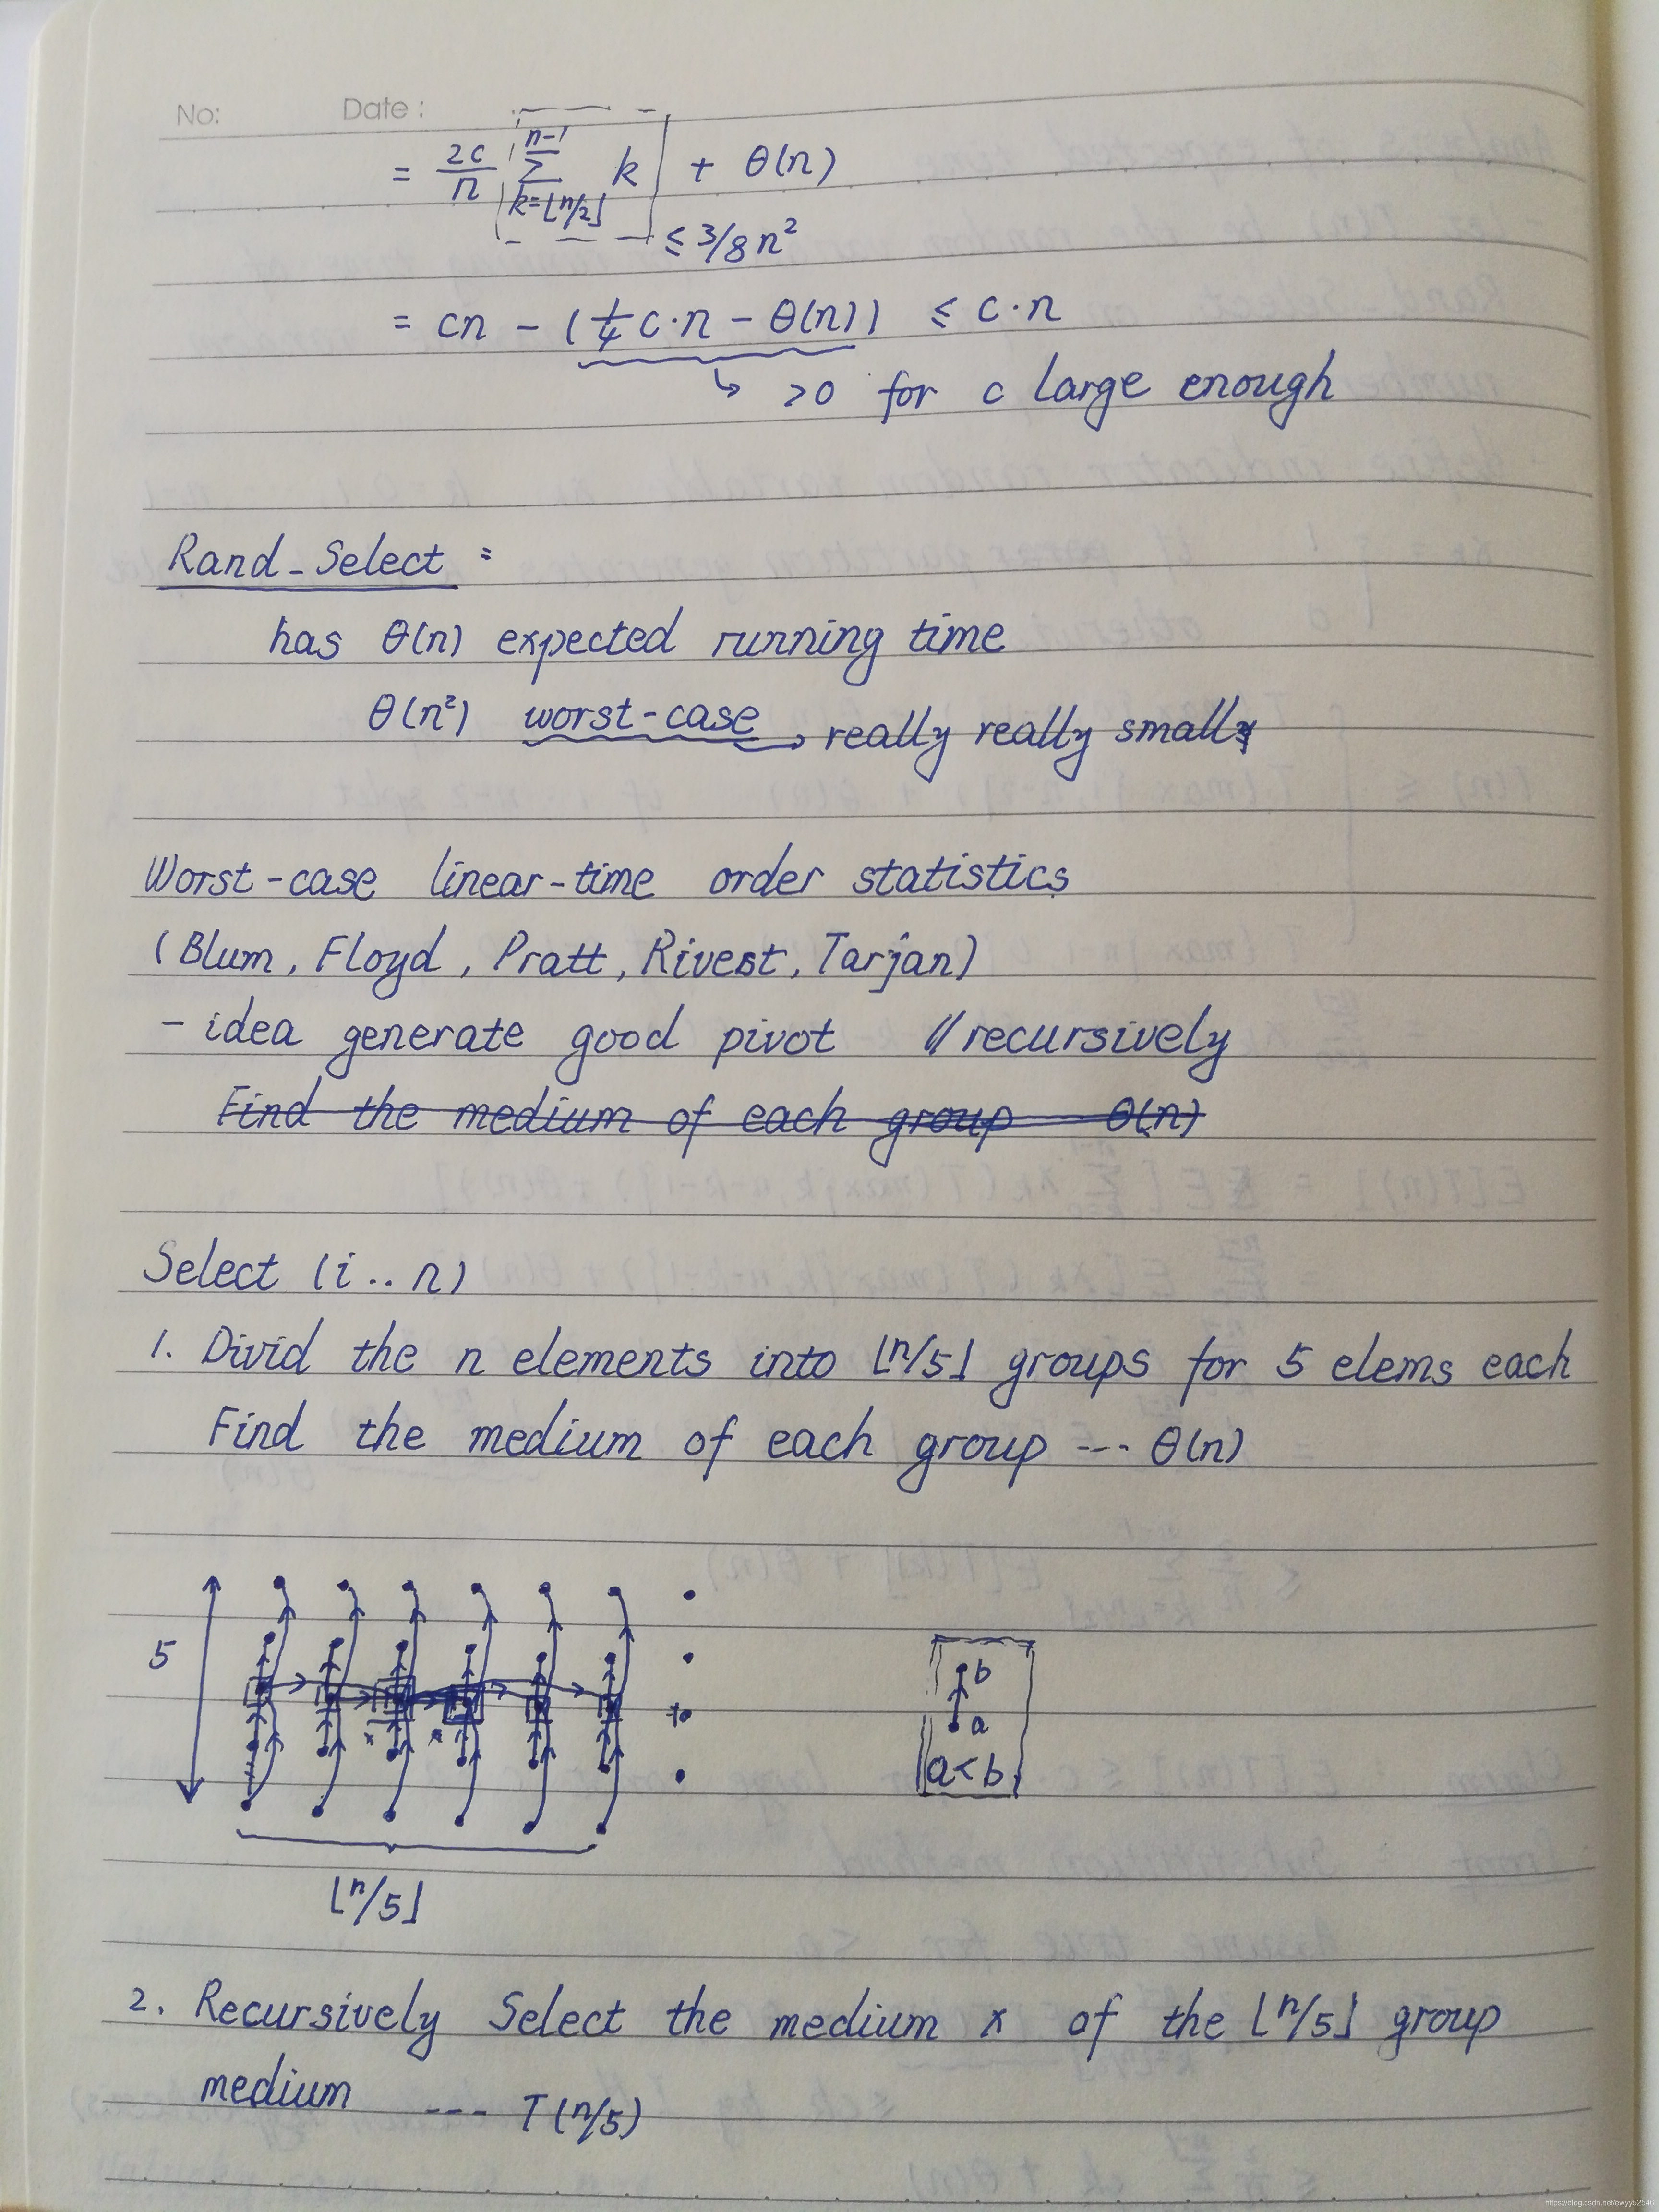 No: Date :
= 2c/n Σ_{k=⌊n/2⌋}^{n-1} k + θ(n)
≤ 3/8 n²
= cn - (1/4 c·n - θ(n)) ≤ c·n
↳ >0 for c large enough
Rand_Select :
has θ(n) expected running time
θ(n²) worst-case → really really small
Worst-case linear-time order statistics
(Blum, Floyd, Pratt, Rivest, Tarjan)
- idea generate good pivot // recursively
Find the medium of each group θ(n)
Select (i .. n)
1. Divid the n elements into ⌊n/5⌋ groups for 5 elems each
Find the medium of each group --- θ(n)
5
b
a
a<b
⌊n/5⌋
2. Recursively Select the medium x of the ⌊n/5⌋ group
medium --- T(n/5)
https://blog.csdn.net/ewyy52546